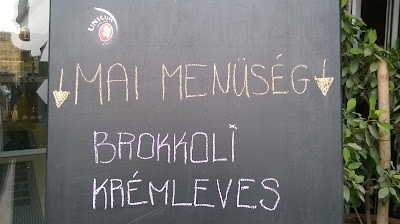 UNICUM
MAI MENÜSÉG
BROKKOLI
KRÉMLEVES